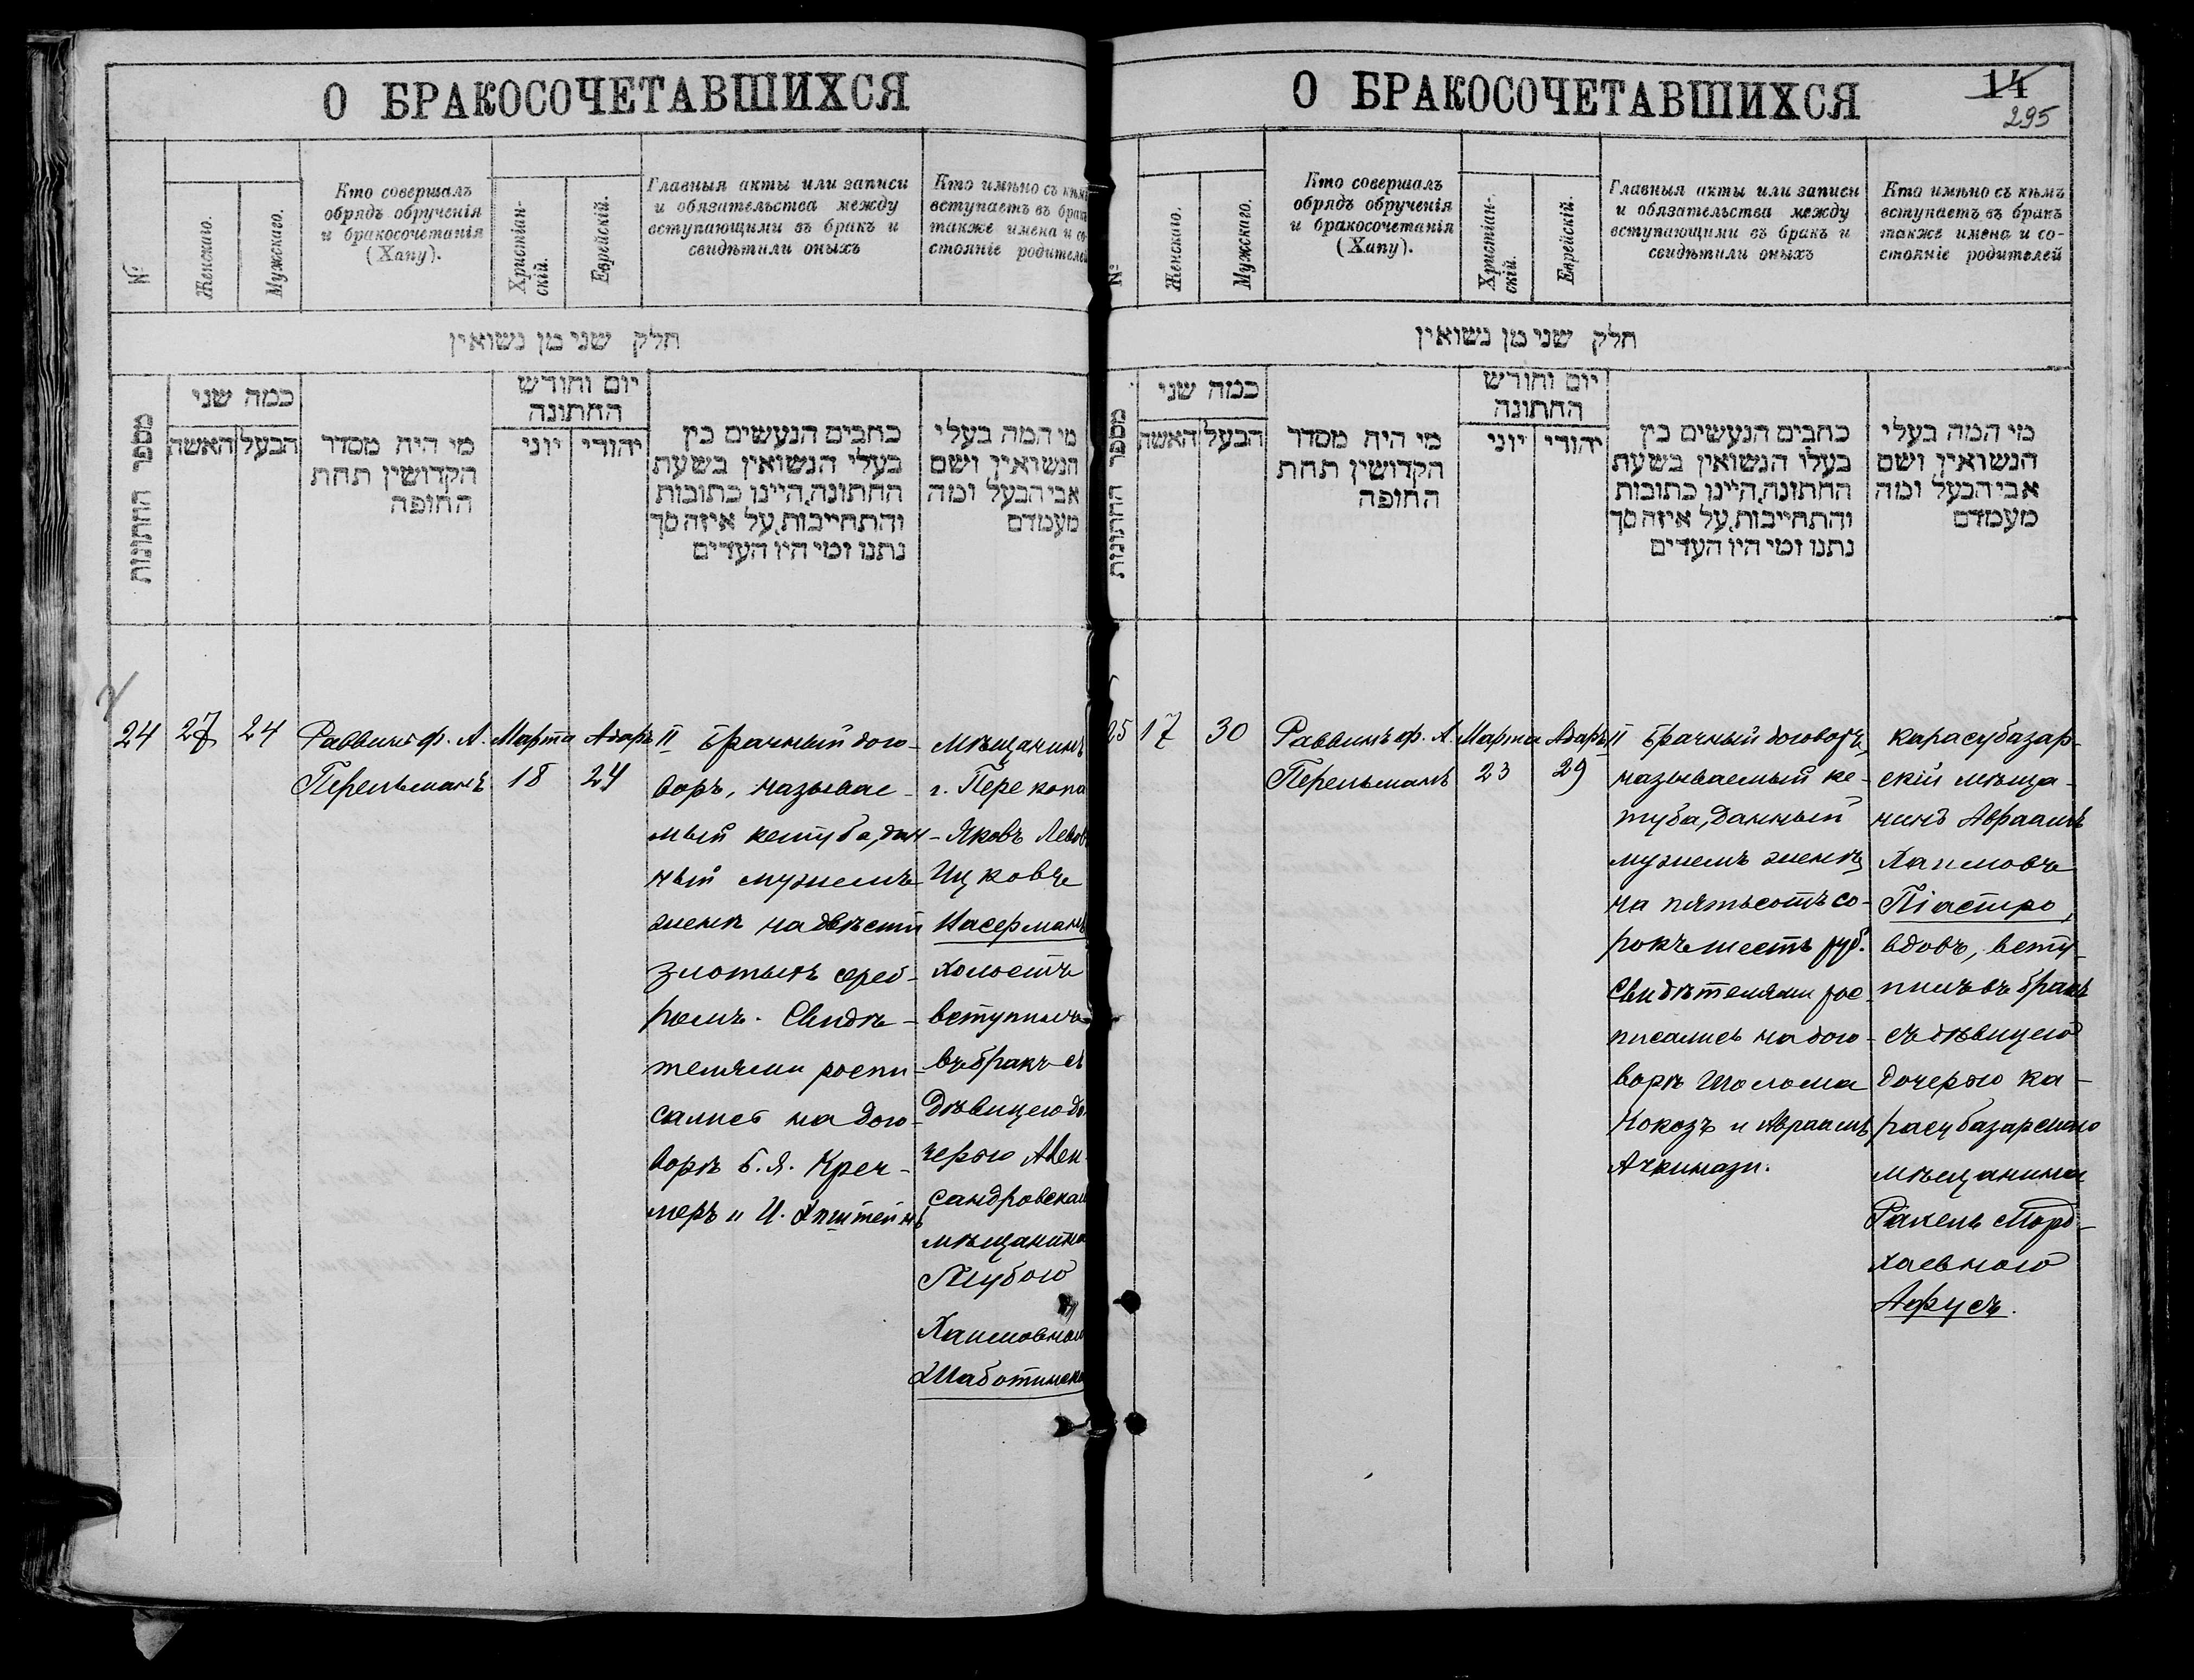 О БРАКОСОЧЕТАВШИХСЯ
№
Женскаго.
Мужскаго.
Кто совершалъ
обрядъ обрученія
и бракосочетанія
(Хапу).
Христіан-
скій.
Еврейскій.
Главныя акты или записи
и обязательства между
вступающими въ бракъ и
свидѣтили оныхъ
Кто имѣно съ кѣмъ
вступаетъ въ бракъ
также имена и со-
стояніе родителей
חלק שני מן נשואין
מספר החתונות
כמה שני
האשה
הבעל
מי היה מסדר
הקדושין תחת
החופה
יום וחודש
החתונה
יוני
יהודי
כתבים הנעשים בין
בעלי הנשואין בשעת
החתונה, היינו כתובות
והתחייבות, על איזה סך
נתנו ומי היו העדים
מי המה בעלי
הנשואין ושם
אבי הבעל ומה
מעמדם
24
27
24
Раввинъ ф. А.
Перельманъ
Марта
18
Адаръ II
24
Брачный дого-
воръ, называе-
мый кетуба, дан-
ный мужемъ
женѣ на двѣсти
злотыхъ сереб-
ромъ. Свидѣ-
телями роспи-
сались на дого-
ворѣ Б. Я. Креч-
меръ и И. Эпштейнъ
Мѣщанинъ
г. Перекопа
Яковъ Левов
Ицковъ
Насерманъ
холостъ
вступилъ
въ бракъ съ
дѣвицею до-
черью Алек-
сандровскаго
мѣщанина
Хаимовною
Шаботинск
О БРАКОСОЧЕТАВШИХСЯ
14
295
№
Женскаго.
Мужскаго.
Кто совершалъ
обрядъ обрученія
и бракосочетанія
(Хапу).
Христіан-
скій.
Еврейскій.
Главныя акты или записи
и обязательства между
вступающими въ бракъ и
свидѣтили оныхъ
Кто имѣно съ кѣмъ
вступаетъ въ бракъ
также имена и со-
стояніе родителей
חלק שני מן נשואין
מספר החתונות
כמה שני
האשה
הבעל
מי היה מסדר
הקדושין תחת
החופה
יום וחודש
החתונה
יוני
יהודי
כתבים הנעשים בין
בעלי הנשואין בשעת
החתונה, היינו כתובות
והתחייבות, על איזה סך
נתנו ומי היו העדים
מי המה בעלי
הנשואין ושם
אבי הבעל ומה
מעמדם
25
17
30
Раввинъ ф. А.
Перельманъ
Марта
23
Адаръ II
29
Брачный договоръ,
называемый ке-
туба, данный
мужемъ женѣ
на пятьсотъ со-
рокъ шесть руб.
Свидѣтелями рос-
писались на дого-
ворѣ Шолома
Кокозъ и Авраамъ
Ачкинази.
Карасубазар-
скій мѣща-
нинъ Авраамъ
Хаимовъ
Піастро,
вдовъ, всту-
пилъ въ бракъ
съ дѣвицею
дочерью ка-
расубазарскаго
мѣщанина
Рахель Морд-
хаевною
Афусъ.